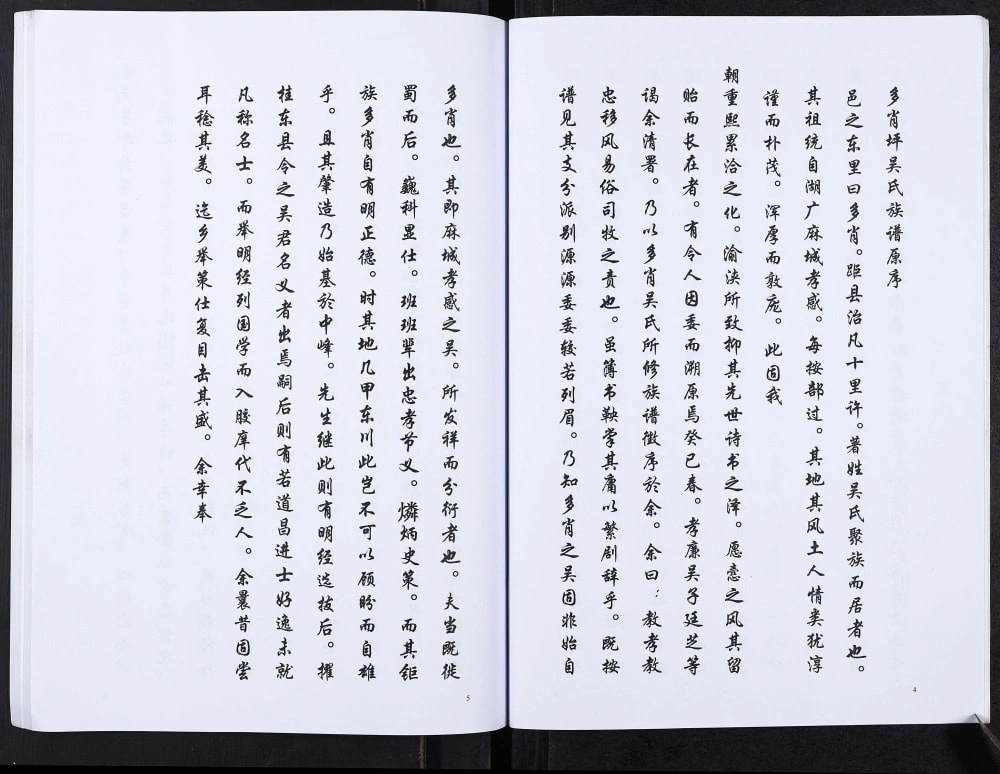 多肖坪吴氏族谱原序
邑之东里曰多肖。距县治凡十里许。著姓吴氏聚族而居者也。
其祖统自湖广麻城孝感。每按部过。其地其风土人情类犹淳
谨而朴茂。浑厚而敦庞。此固我
朝重熙累洽之化。渝浃所致抑其先世诗书之泽。愿悫之风其留
贻而长在者。有令人因委而溯原焉癸巳春。孝廉吴子廷芝等
谒余清署。乃以多肖吴氏所修族谱徵序於余。余曰：教孝教
忠移风易俗司牧之责也。虽簿书鞅掌其庸以繁剧辞乎。既按
谱见其支分派别源源委委较若列眉。乃知多肖之吴固非始自
4
多肖也。其即麻城孝感之吴。所发祥而分衍者也。夫当既徙
蜀而后。巍科显仕。班班辈出忠孝节义。燐炳史策。而其钜
族多肖自有明正德。时其地几甲东川此岂不可以顾盼而自雄
乎。且其肇造乃始基於中峰。先生继此则有明经选拔后。擢
桂东县令之吴君名义者出焉嗣后则有若道昌进士好逸未就
凡称名士。而举明经列国学而入胶庠代不乏人。余曩昔固尝
耳稔其美。迨乡举策仕复目击其盛。余幸奉
5